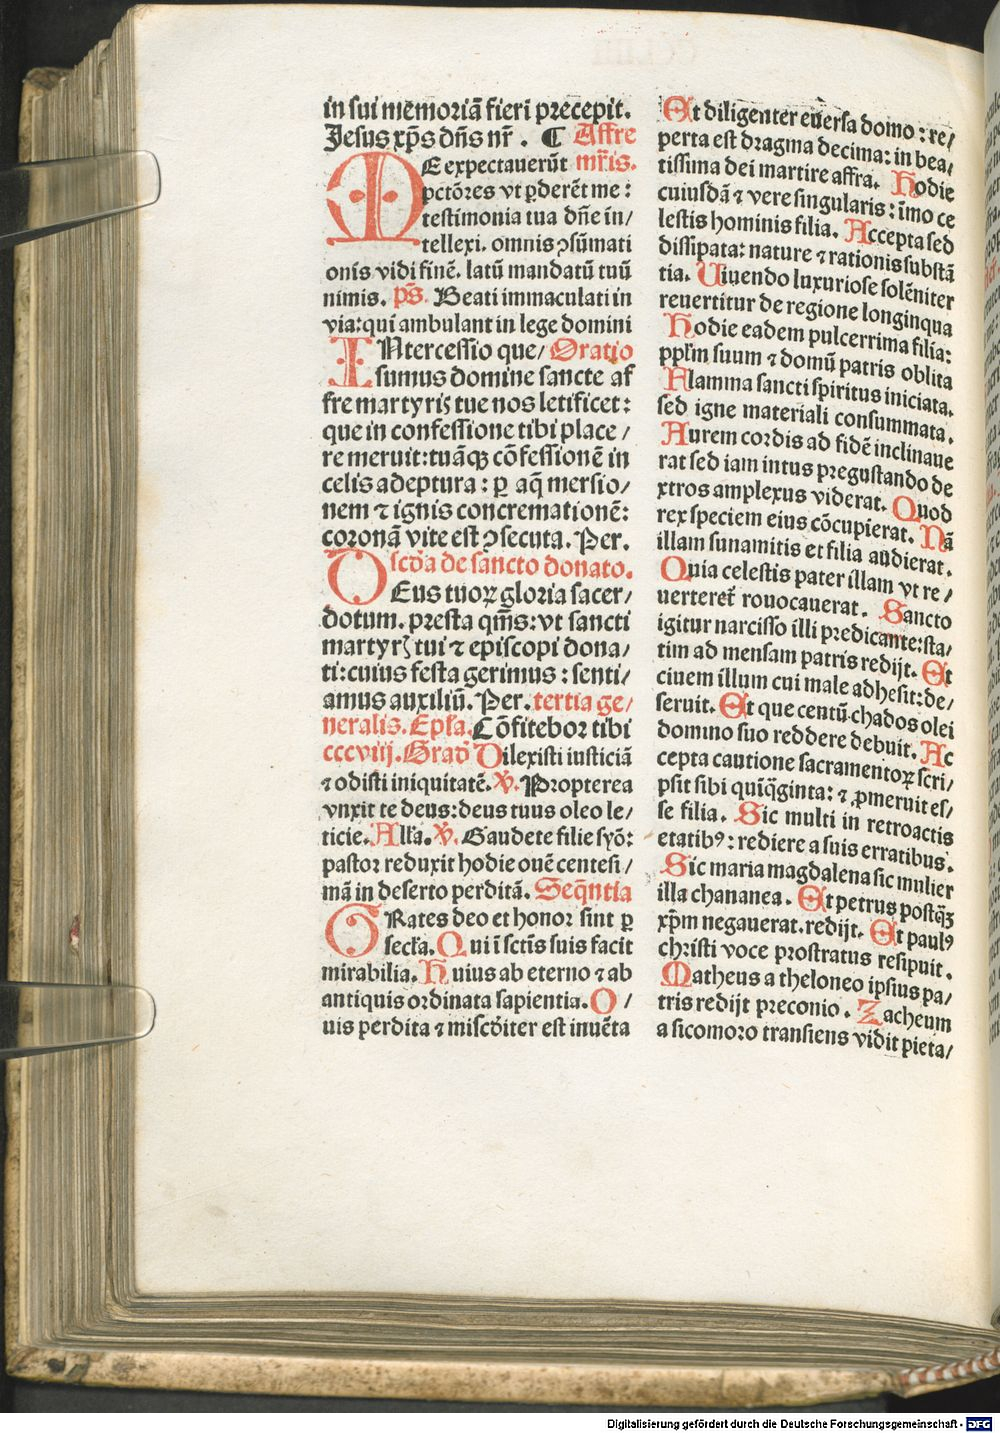 in sui memoriā fieri precepit.
Jesus xp̄s dn̄s nr̄. ¶ Affre
ME expectauerūt mr̄is.
pctōres vt ꝑderēt me:
testimonia tua dn̄e in/
tellexi. omnis ꝯsūmati
onis vidi finē. latū mandatū tuū
nimis. ps̄. Beati immaculati in
via: qui ambulant in lege domini
INtercessio que/ Oratio
sumus domine sancte af
fre martyris tue nos letificet:
que in confessione tibi place/
re meruit: tuāqꝫ cōfessionē in
celis adeptura: ꝑ aq̄ mersio/
nem ⁊ ignis concremationē:
coronā vite est ꝯsecuta. Per.
Oscōa de sancto donato.
Eus tuoꝝ gloria sacer/
dotum. presta qm̄s: vt sancti
martyrꝭ tui ⁊ episcopi dona/
ti: cuius festa gerimus: senti/
amus auxiliū. Per. tertia ge/
neralis. Epl̄a. Cōfitebor tibi
cccviij. Grad̄ Dilexisti iusticiā
⁊ odisti iniquitatē. ℣. Propterea
vnxit te deus: deus tuus oleo le/
ticie. All̄a. ℣. Gaudete filie syō:
pastor reduxit hodie ouē centesi/
mā in deserto perditā. Seq̄ntia
GRates deo et honor sint ꝑ
secl̄a. Qui ī sctīs suis facit
mirabilia. Huius ab eterno ⁊ ab
antiquis ordinata sapientia. O/
uis perdita ⁊ misc̄diter est inuēta
Et diligenter eūersa domo: re/
perta est dragma decima: in bea/
tissima dei martire affra. Hodie
cuiusdā ⁊ vere singularis: īmo ce
lestis hominis filia. Accepta sed
dissipata: nature ⁊ rationis substā
tia. Uiuendo luxuriose solēniter
reuertitur de regione longinqua
Hodie eadem pulcerrima filia:
ppl̄m suum ⁊ domū patris oblita
Flamma sancti spiritus iniciata.
sed igne materiali consummata.
Aurem cordis ad fidē inclinaue
rat sed iam intus pregustando de
xtros amplexus viderat. Quod
rex speciem eius cōcupierat. Nā
illam sunamitis et filia audierat.
Quia celestis pater illam vt re/
uerteret̄ rouocauerat. Sancto
igitur narcisso illi predicante: sta/
tim ad mensam patris redijt. Et
ciuem illum cui male adhesit: de/
seruit. Et que centū chados olei
domino suo reddere debuit. Ac
cepta cautione sacramentoꝝ scri/
psit sibi quiq̄ginta: ⁊ ꝓmeruit es/
se filia. Sic multi in retroactis
etatibꝰ: rediere a suis erratibus.
Sic maria magdalena sic mulier
illa chananea. Et petrus postq̄ꝫ
xp̄m negauerat. redijt. Et paulꝰ
christi voce prostratus resipuit.
Matheus a theloneo ipsius pa/
tris redijt preconio. Zacheum
a sicomoro transiens vidit pieta/
Digitalisierung gefördert durch die Deutsche Forschungsgemeinschaft - DFG